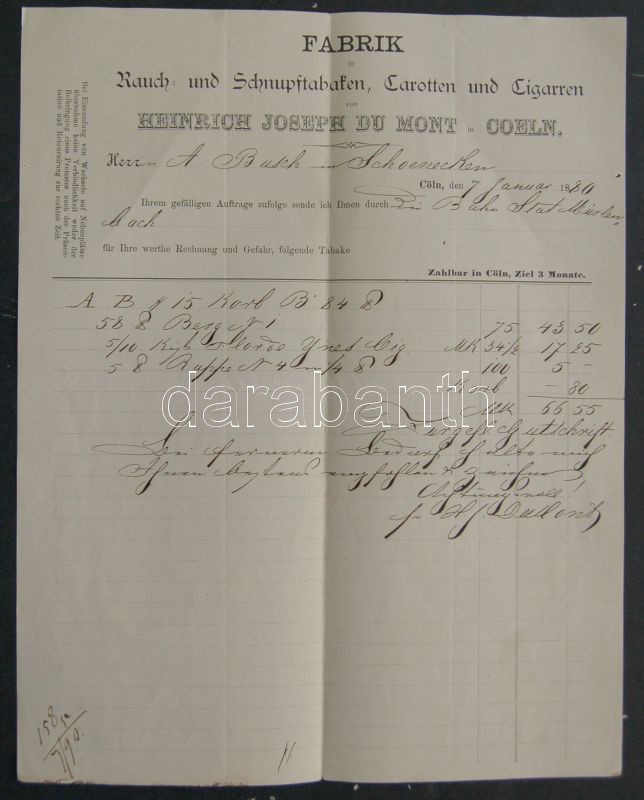 FABRIK
in
Rauch- und Schnupftabaken, Carotten und Cigarren
von
HEINRICH JOSEPH DU MONT in COELN.
Herrn A Busch in Schoenecken
Cöln, den 7 Januar 1880
Ihrem gefälligen Auftrage zufolge sende ich Ihnen durch die Bahn Stat Mürlen
bach
für Ihre werthe Rechnung und Gefahr, folgende Tabake
Zahlbar in Cöln, Ziel 3 Monate.
Bei Einsendung von Wechseln auf Nebenplätze
übernehme keine Verbindlichkeit weder der
Beibringung eines Protestes noch der Präsen-
tation und Retournirung zur rechten Zeit.
A B # 15 Korb B 84 ℔
58 ℔ Berg N 1 75 43 50
5/10 Cig MK 34 1/2 17 25
5 ℔ Rappe N 4 1/4 ℔ 100 5 -
Korb - 80
MK 66 55
Gutschrift.
Bei fernerem Bedarf halte mich
Ihnen bestens empfohlen & zeichne
Achtungsvoll!
H J. DuMont
darabanth